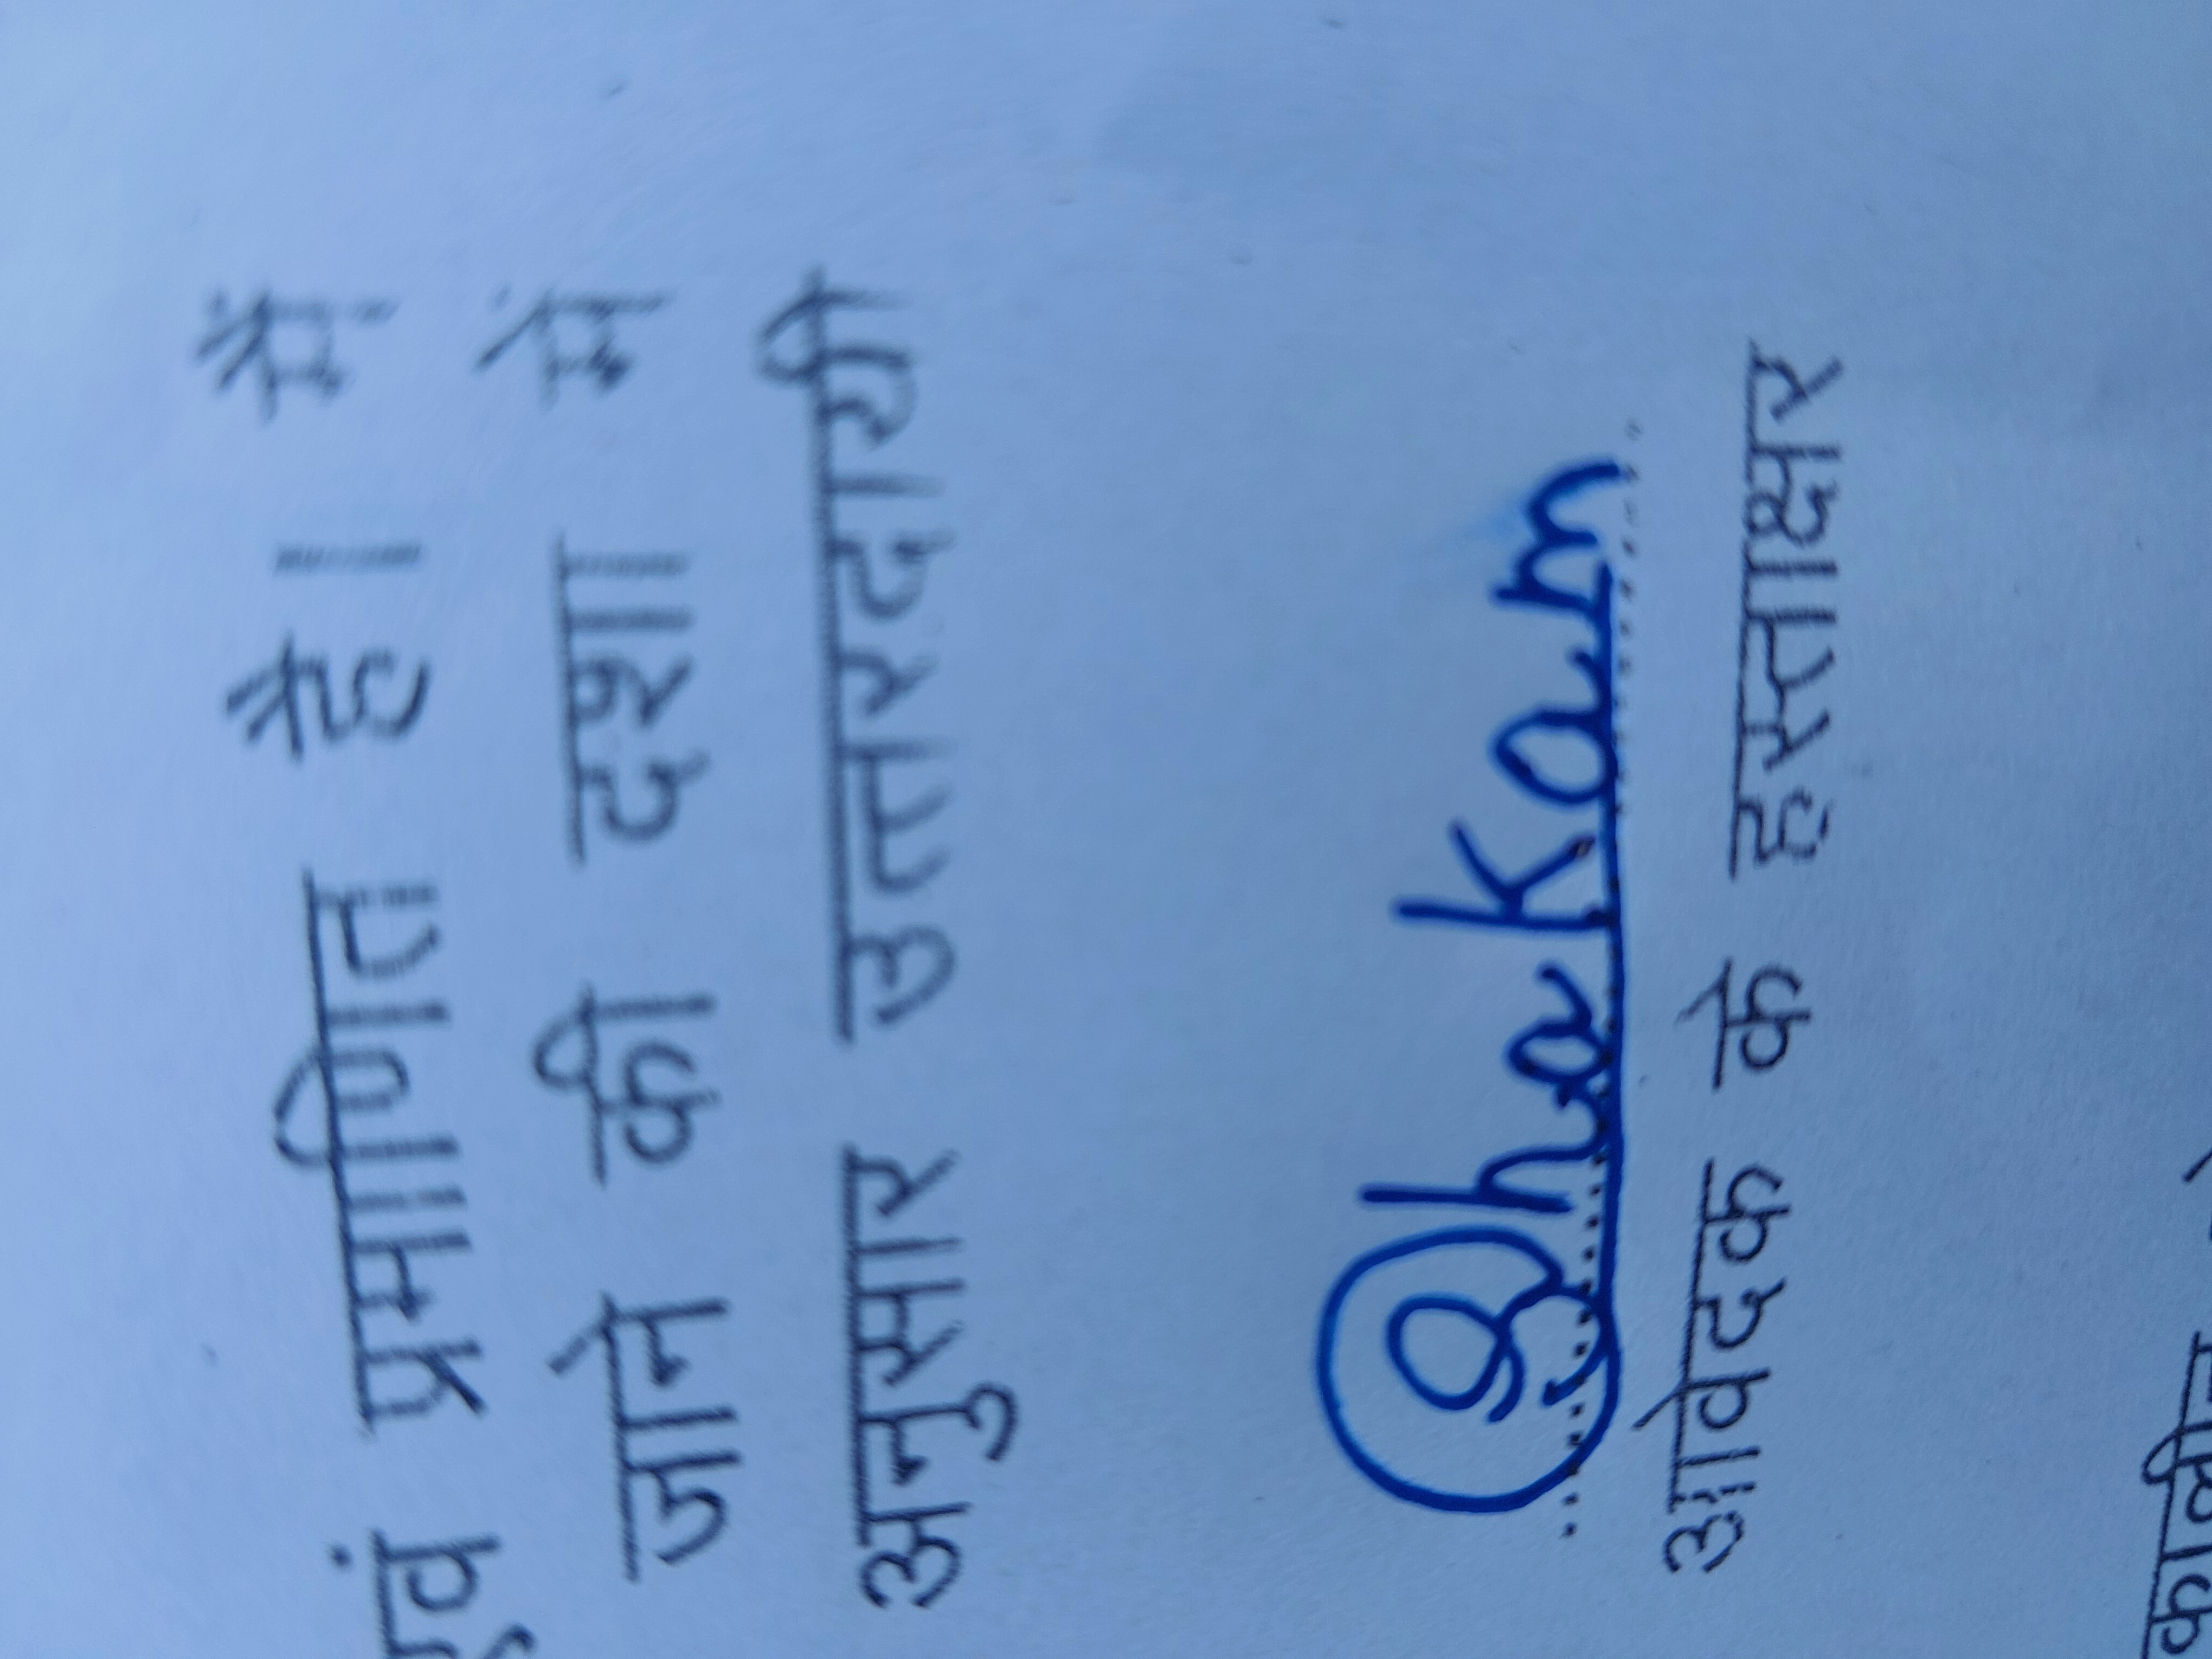 एवं प्रमाणित है। मैं
जाने की दशा में
अनुसार उत्तरदायी
Shakam
आवेदक के हस्ताक्षर